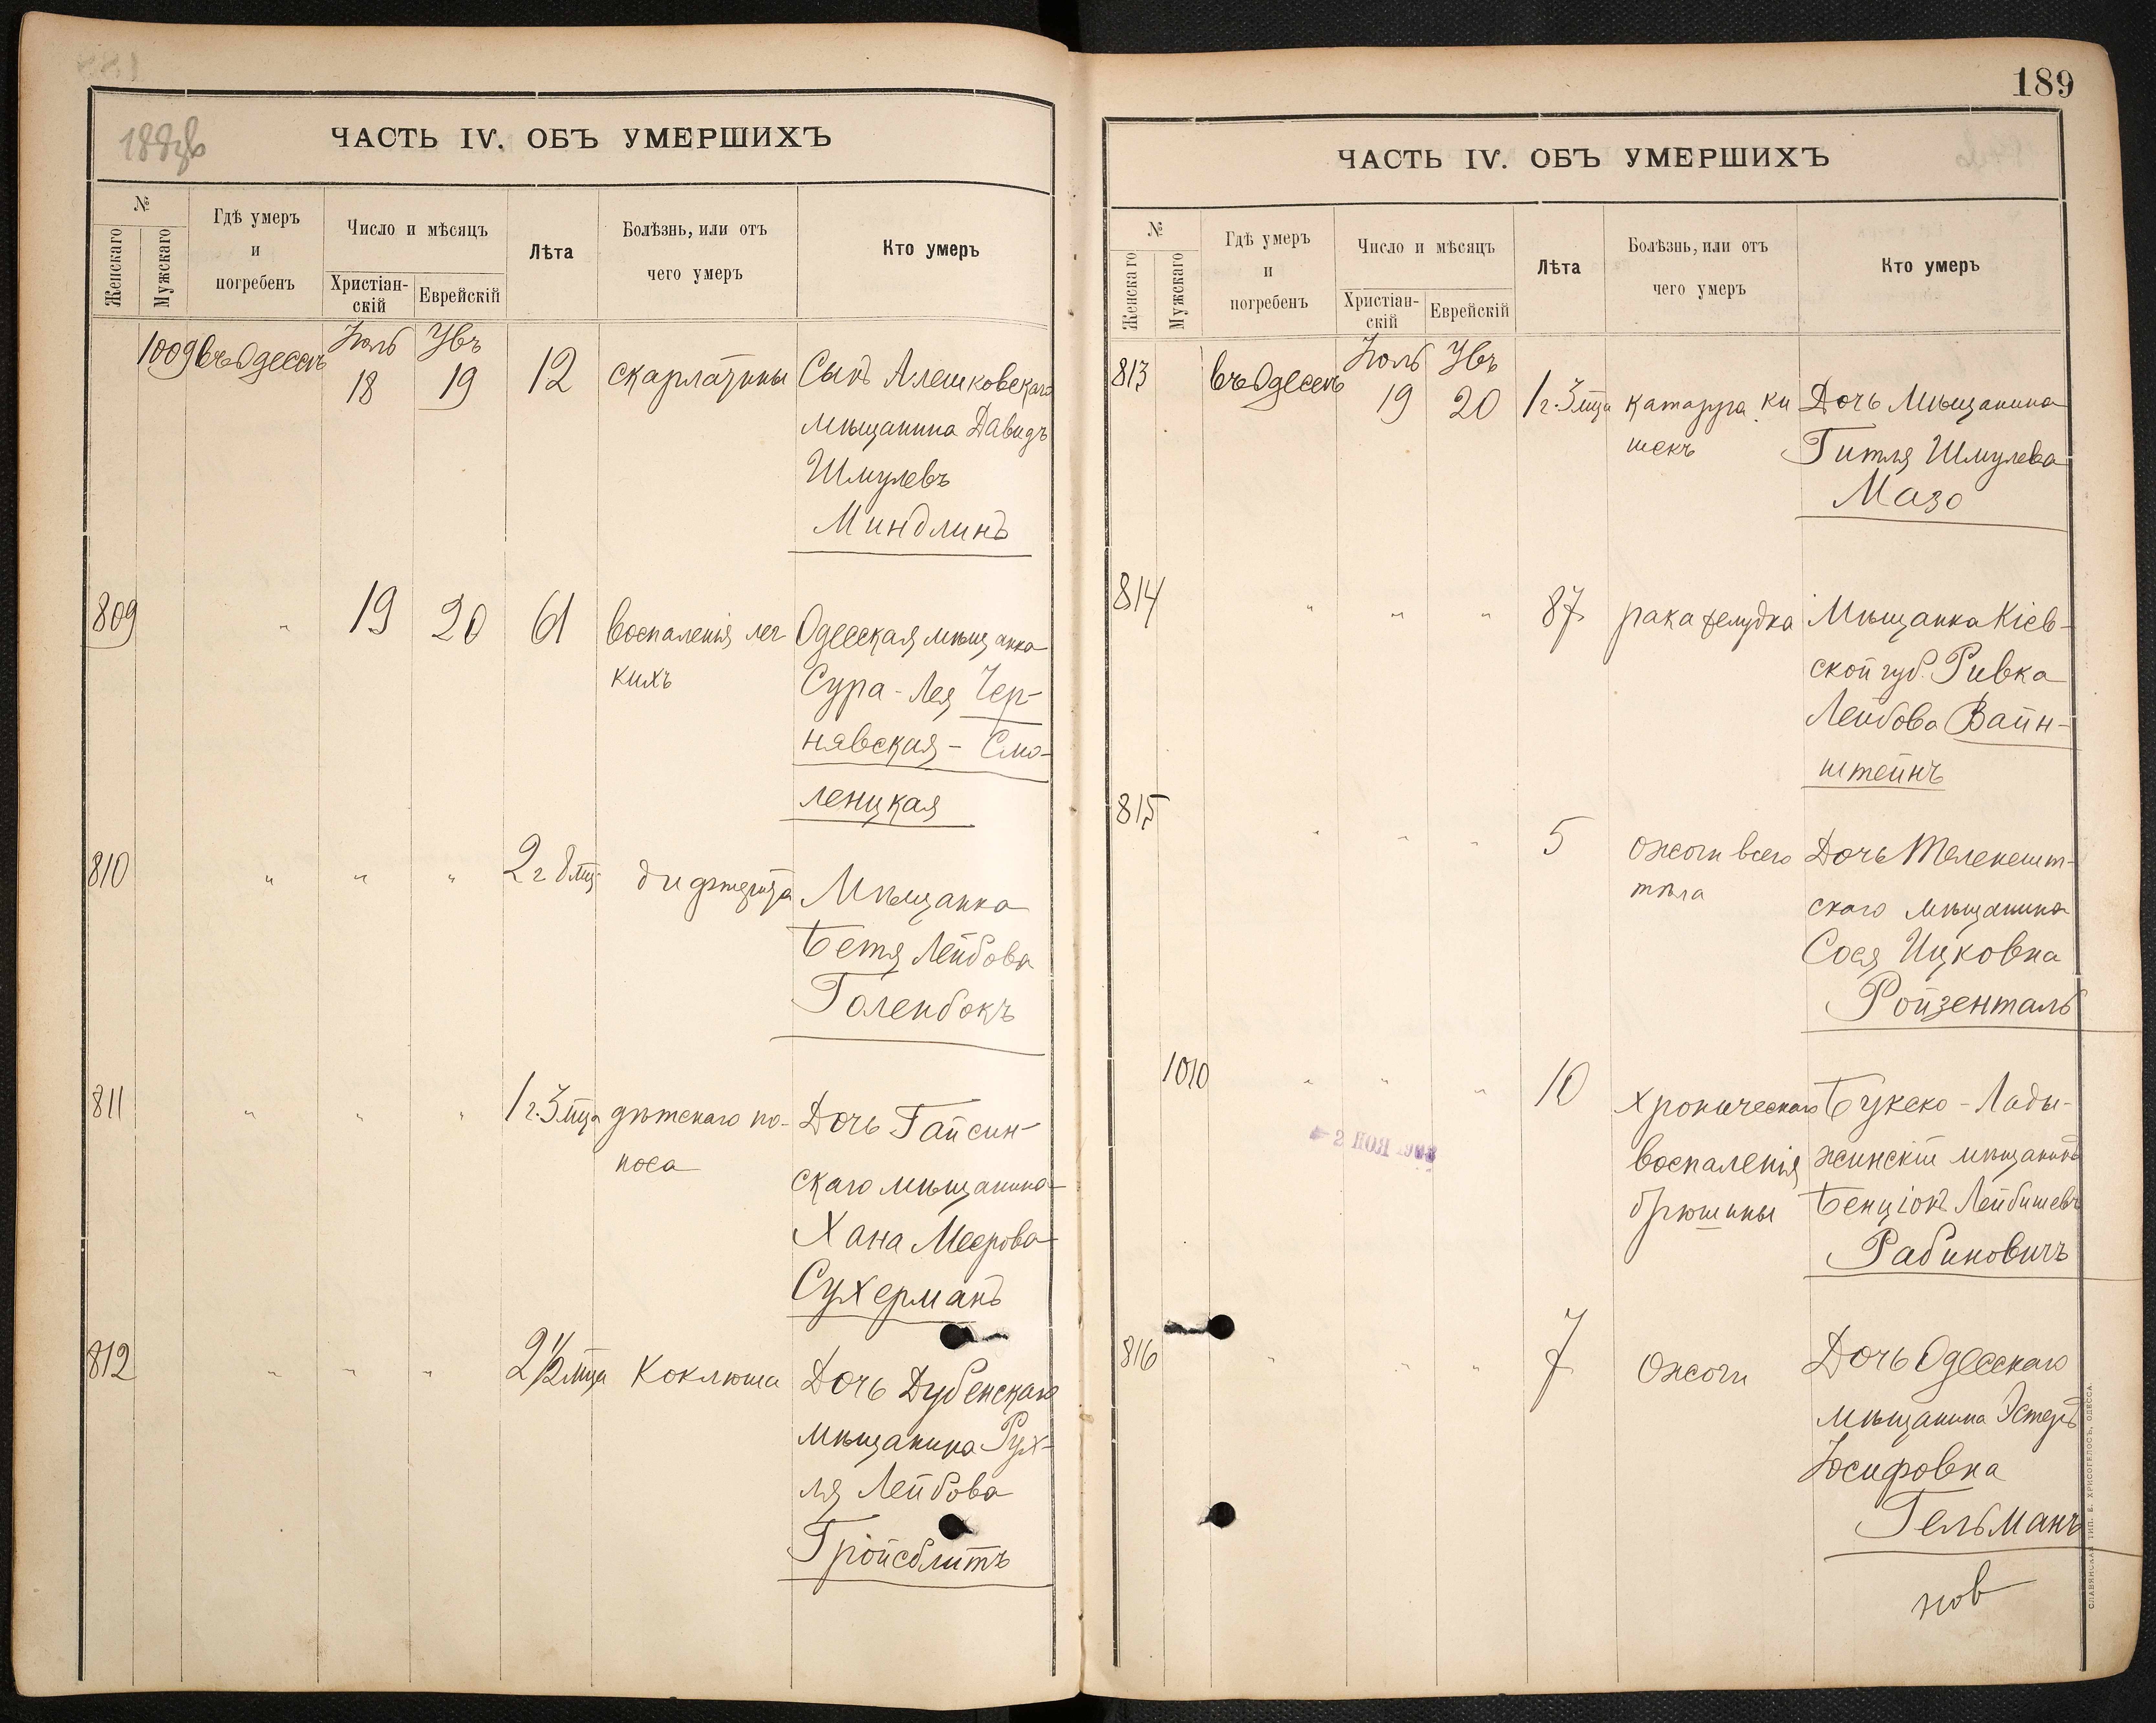 188об
ЧАСТЬ IV. ОБЪ УМЕРШИХЪ
№
Женскаго
Мужскаго
Гдѣ умеръ
и
погребенъ
Число и мѣсяцъ
Христіан-
скій
Еврейскій
Лѣта
Болѣзнь, или отъ
чего умеръ
Кто умеръ
1009 въ Одессѣ Іюль 18 Увъ 19 12 скарлатины Сынъ Алешковскаго
мѣщанина Давидъ
Шмулевъ
Миндлинъ
809 " 19 20 61 воспаленія лег Одесская мѣщанка
кихъ Сура-Лея Чер-
нявская - Смо-
леницкая
810 " " " 2 г 8 мц дифтерита Мѣщанка
Бетя Лейбова
Голенбокъ
811 " " " 1 г. 3 мца дѣтскаго по- Дочь Гайсин-
носа скаго мѣщанина
Хана Меерова
Сухерманъ
812 " " " 2 1/2 мца Коклюша Дочь Дубенскаго
мѣщанина Рух-
ля Лейбова
Гройсблитъ
189
ЧАСТЬ IV. ОБЪ УМЕРШИХЪ
№
Женскаго
Мужскаго
Гдѣ умеръ
и
погребенъ
Число и мѣсяцъ
Христіан-
скій
Еврейскій
Лѣта
Болѣзнь, или отъ
чего умеръ
Кто умеръ
813 въ Одессѣ Іюль 19 Увъ 20 1 г. 3 мца катарра ки Дочь Мѣщанина
шекъ Гитля Шмулева
Мазо
814 " " " 87 рака желудка Мѣщанка Кіев-
ской губ. Ривка
Лейбова Вайн-
штейнъ
815 " " " 5 ожоги всего Дочь Теленешт-
тѣла скаго мѣщанина
Сося Ицковна
Ройзенталь
1010 " " " 10 хроническаго Букеко-Лады-
воспаленія жинскій мѣщанинъ
брюшины Бенціонъ Лейбишевъ
Рабиновичъ
2 НОЯ
816 " " " 7 Ожоги Дочь Одесскаго
мѣщанина Эстеръ
Іосифовна
Гельманъ
нов
СЛАВЯНСКАЯ ТИП. Е. ХРИСОГЕЛОСЪ, ОДЕССА.